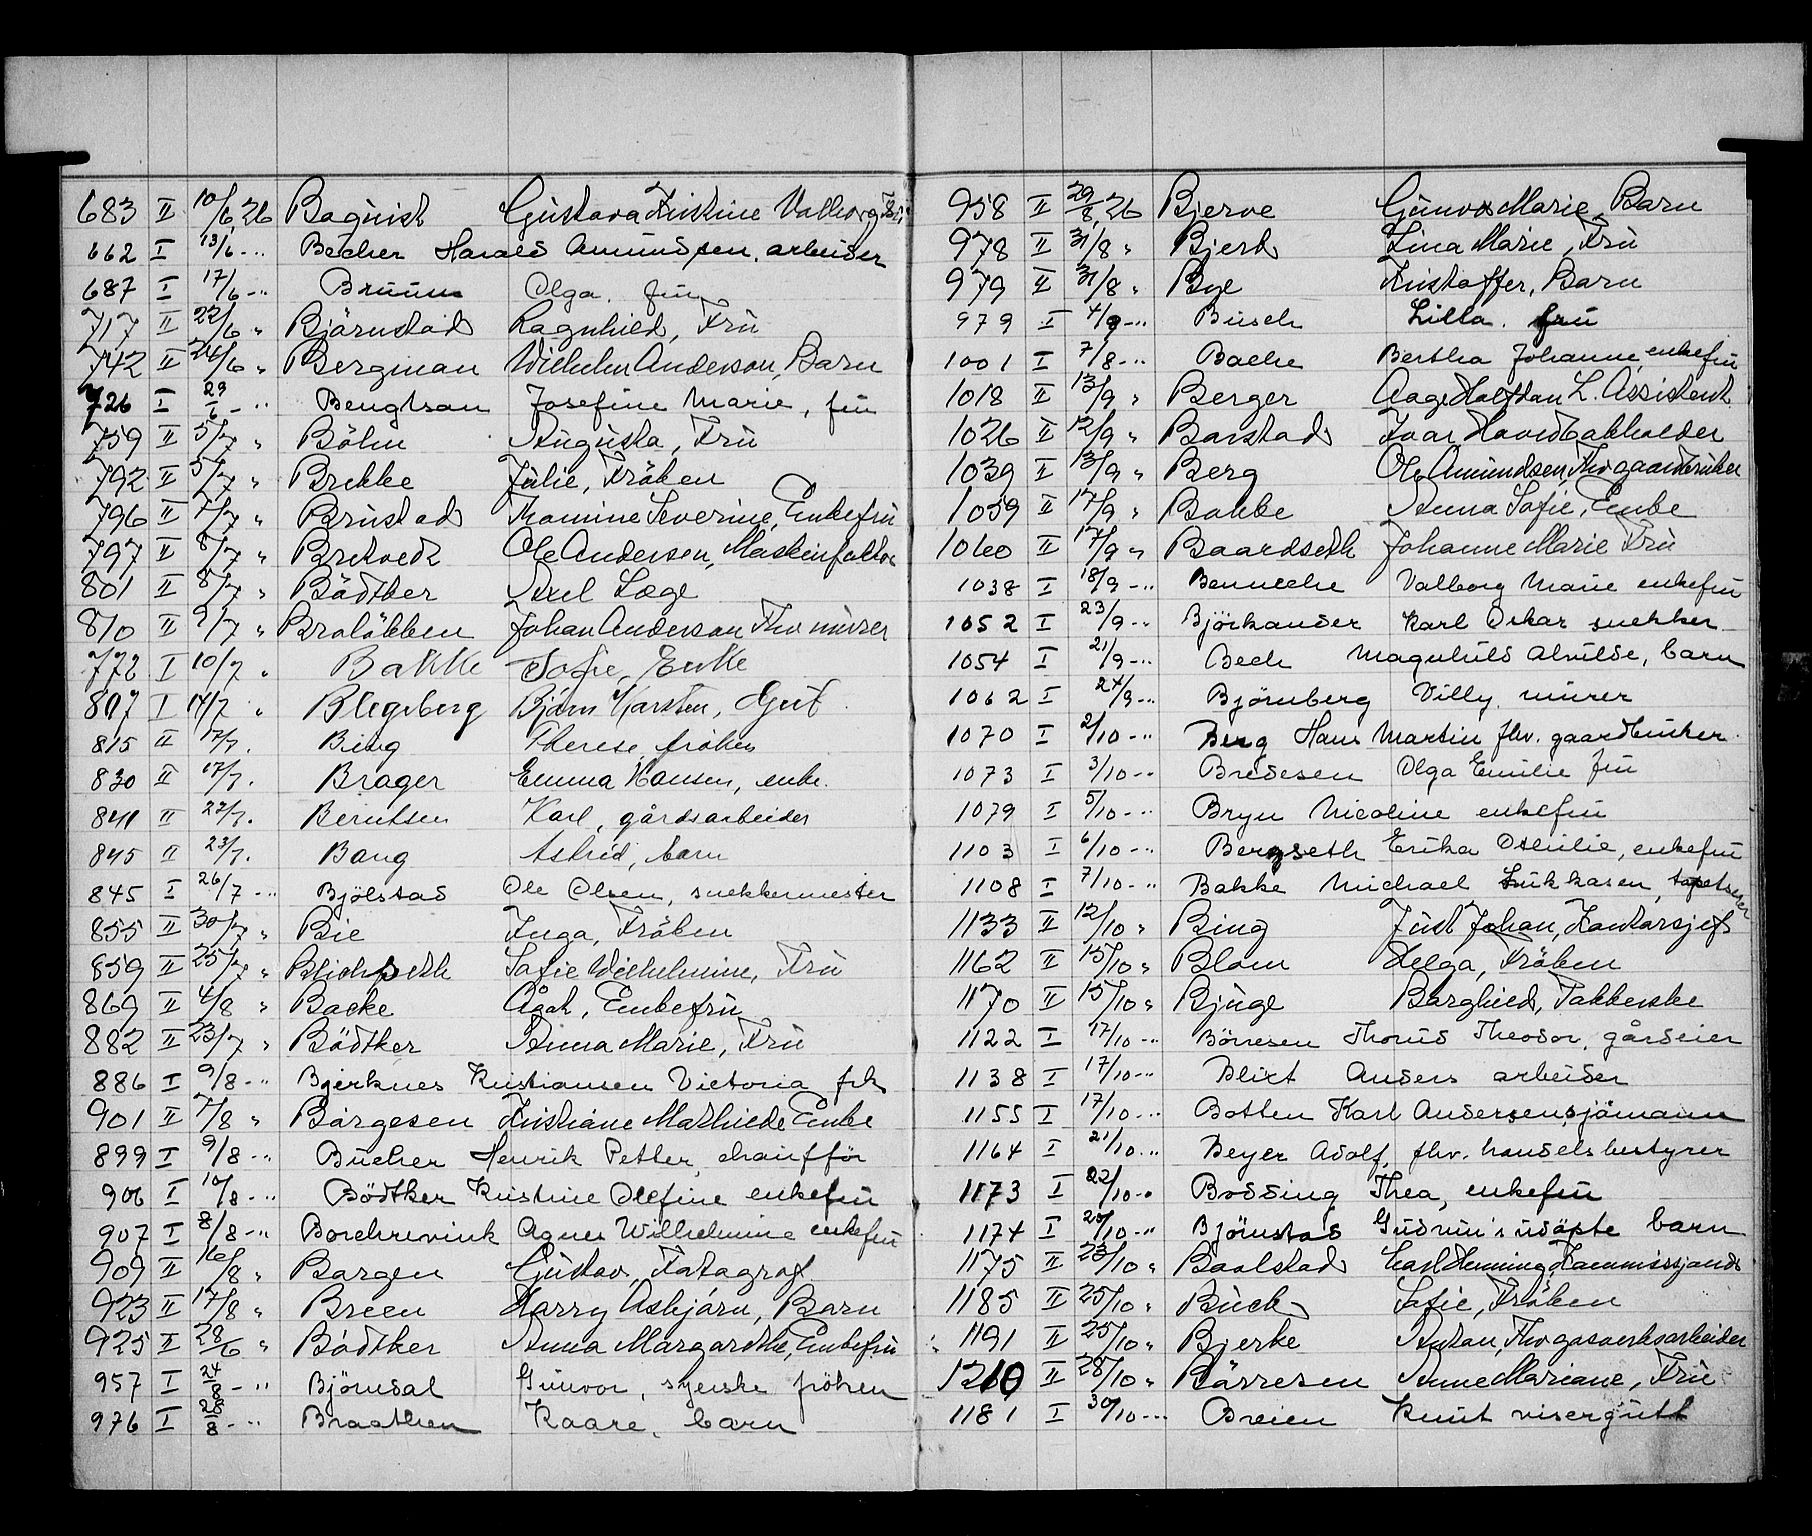 683 II 10/6 26 Baquist Gustava Kristine Valborg
662 I 13/6 -" Becher Harald Amundsen, arbeider
687 I 17/6 -" Bruun Olga, fru
717 II 22/6 " Björnstad Ragnhild, Fru
742 II 24/6 " Bergman Wilhelm Anderson, Barn
726 I 29/6 -" Bengtson Josefine Marie, fru
759 II 5/7 " Böhn Augusta, Fru
792 II 5/7 " Brekke Julie, Fröken
796 II 7/7 " Brustad Thomine Severine, Enkefru
797 II 8/7 " Bretvedt Ole Andersen, Maskinfaktor
801 II 8/7 " Bödtker Axel Læge
810 II 9/7 " Braløkken Johan Anderson Fhv murer
772 I 10/7 " Bakke Sofie, Enke
807 I 14/7 " Blegeberg Bjørn Karsten, Gut
815 II 17/7. Bing Therese, frøken
830 II 17/7. Brager Emma Hansen, enke.
841 II 22/7. Berntsen Karl, gårdsarbeider
845 II 23/7. Bang Astrid, barn
845 I 26/7 -" Bjölstad Ole Olsen, snekkermester
855 II 30/7 " Bie Inga, Fröken
859 II 25/7 " Blichseth Sofie Wilhelmine, Fru
869 II 4/8 " Backe Ågot, Enkefru
882 II 23/7 " Bödtker Anna Marie, Fru
886 I 9/8 -" Bjerknes Kristiansen Victoria frk
901 II 7/8 " Börgesen Kristiane Mathilde Enke
899 I 9/8 -" Bucher Henrik Petter, chaufför
906 I 10/8 -" Bödtker Kristine Olefine enkefru
907 I 8/8 -" Borchrevink Agnes Wilhelmine enkefru
909 II 16/8 " Borgen Gustav, Fotograf
923 II 17/8 " Breen Harry Asbjørn, Barn
925 II 28/6 " Bödtker Anna Margarethe, Enkefru
957 I 24/8 -" Björndal Gunvor, syerske fröken
976 I 28/8 -" Braathen Kaare, barn
958 II 29/8 26 Bjerve Gunvor Marie, Barn
978 II 31/8 " Bjerk Lina Marie, Fru
979 II 31/8 " Bye Kristoffer, Barn
979 I 4/9 -" Busch Lilla. fru
1001 I 7/8 -" Bache Bertha Johanne, enkefru
1018 II 13/9 " Berger Aage Halfdan L. Assistent.
1026 II 12/9 " Borstad Ivar Hovedbokholder
1039 II 13/9 " Berg Ole Amundsen, Fhv gaardbruker
1059 II 17/9 " Bakke Anna Sofie, Enke
1060 II 17/9 " Baardseth Johanne Marie Fru
1038 I 18/9 -" Benneche Valborg Marie enkefru
1052 I 23/9 -" Björkander Karl Oskar snekker
1054 I 21/9 -" Bech Magnhild Alvilde, barn
1062 I 24/9 -" Björnberg Villy, murer
1070 I 2/10 -" Berg Hans Martin fhv. gaardbruker.
1073 I 3/10 -" Bredesen Olga Emilie fru
1079 I 5/10 -" Bryn Nicoline enkefru
1103 I 6/10 -" Bergseth Erika Othilie, enkefru
1108 I 7/10 -" Bakke Michael Lukkasen, tapetserer
1133 II 12/10 " Bing Just Johan, Kontorsjef
1162 II 15/10 " Blom Helga, Fröken
1170 II 15/10 " Bjuge Borghild, Pakkerske
1122 I 17/10 -" Börresen Thorvd Theodor, gårdeier
1138 I 17/10 -" Blixt Anders arbeider
1155 I 17/10 -" Botten Karl Andersen, sjömann
1164 I 21/10 -" Beyer Adolf, fhv. handelsbestyrer
1173 I 22/10 -" Bodding Thea, enkefru
1174 I 20/10 -" Björnstad Gudrun's udöpte barn
1175 II 23/10 " Baalstad Carl Henning,
1185 II 25/10 " Buck Sofie, Fröken
1191 II 25/10 " Bjerke Anton, Fhv gasverksarbeider
1210 II 28/10 " Börresen Anne Mariane, Fru
1181 I 30/10 -" Breien Knut visergutt